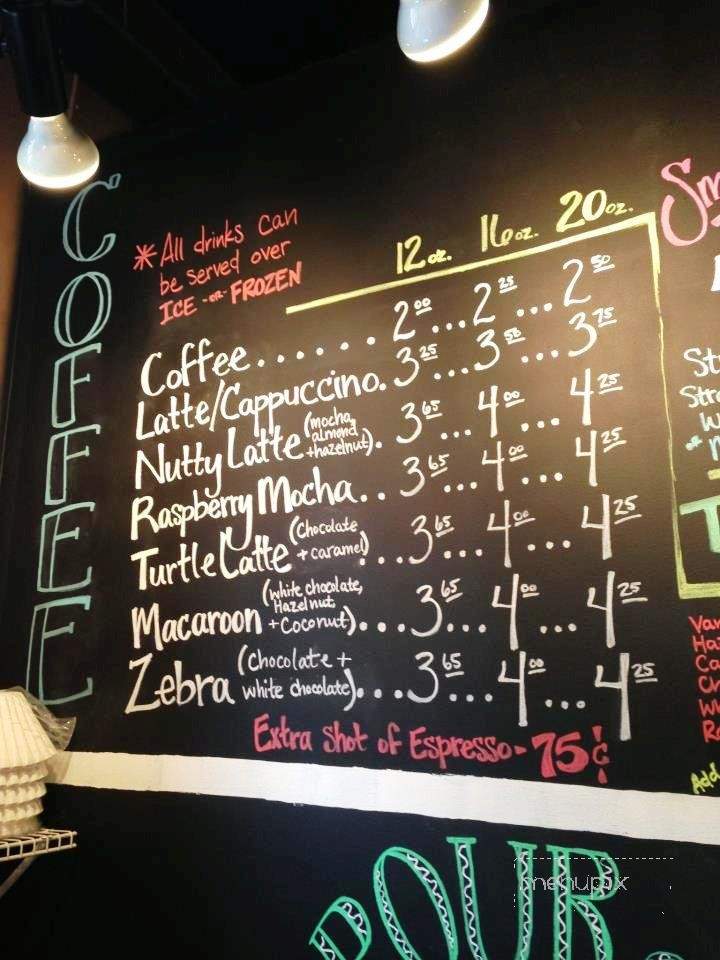 COFFEE
*All drinks can
be served over
ICE -or- FROZEN
12 oz. 16 oz. 20 oz.
Coffee...... 2.00...2.25...2.50
Latte/Cappuccino. 3.25...3.50...3.75
Nutty Latte (mocha, almond + hazelnut). 3.65...4.00...4.25
Raspberry Mocha.. 3.65...4.00...4.25
Turtle Latte (Chocolate + caramel)... 3.65...4.00...4.25
Macaroon (white chocolate, Hazelnut + Coconut)... 3.65...4.00...4.25
Zebra (chocolate + white chocolate)... 3.65...4.00...4.25
Extra shot of Espresso - 75¢
Add
POUR
menupix